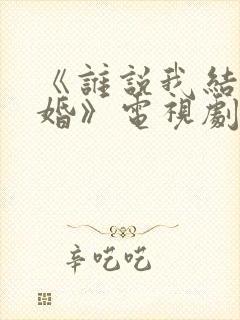 《誰説我結
婚》電視劇
辛吃吃